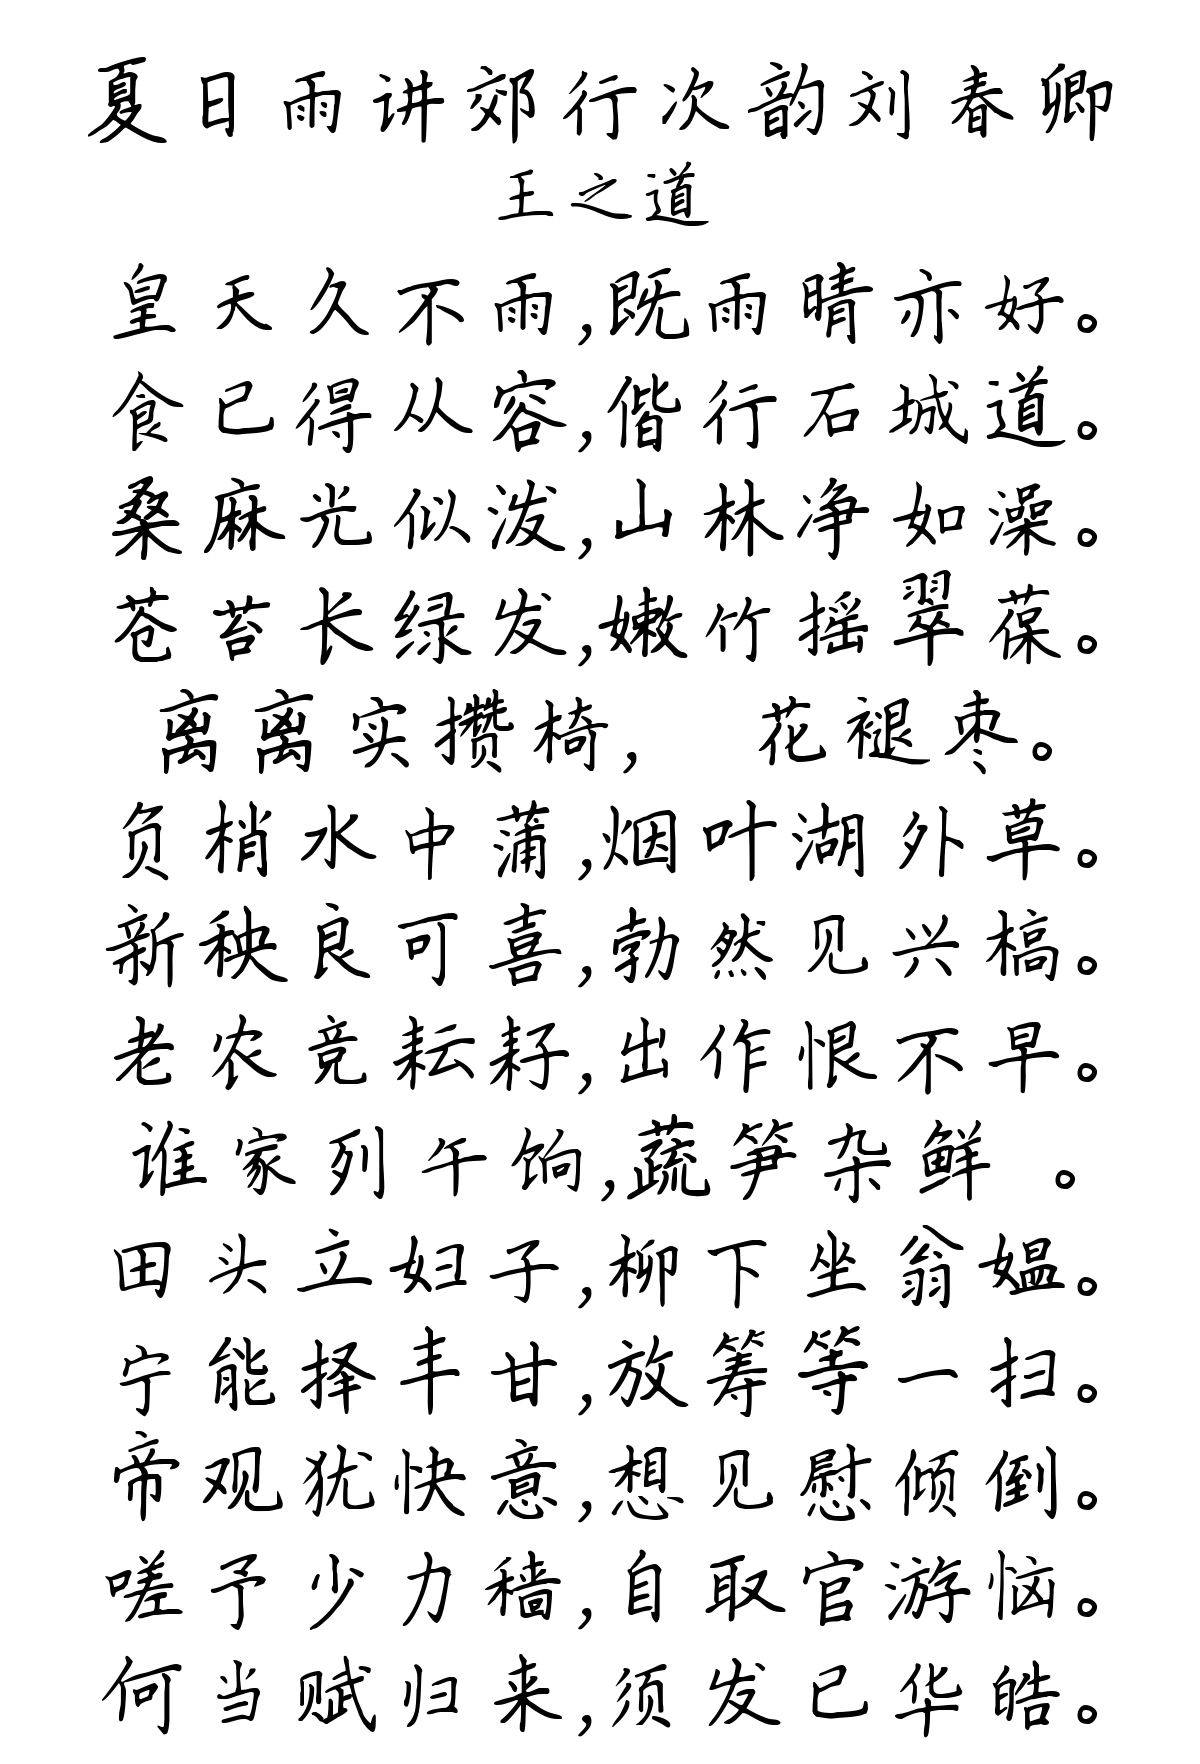 夏日雨讲郊行次韵刘春卿
王之道
皇天久不雨,既雨晴亦好。
食已得从容,偕行石城道。
桑麻光似泼,山林净如澡。
苍苔长绿发,嫩竹摇翠葆。
离离实攒椅, 花褪枣。
负梢水中蒲,烟叶湖外草。
新秧良可喜,勃然见兴槁。
老农竞耘耔,出作恨不早。
谁家列午饷,蔬笋杂鲜 。
田头立妇子,柳下坐翁媪。
宁能择丰甘,放筹等一扫。
帝观犹快意,想见慰倾倒。
嗟予少力穑,自取官游恼。
何当赋归来,须发已华皓。